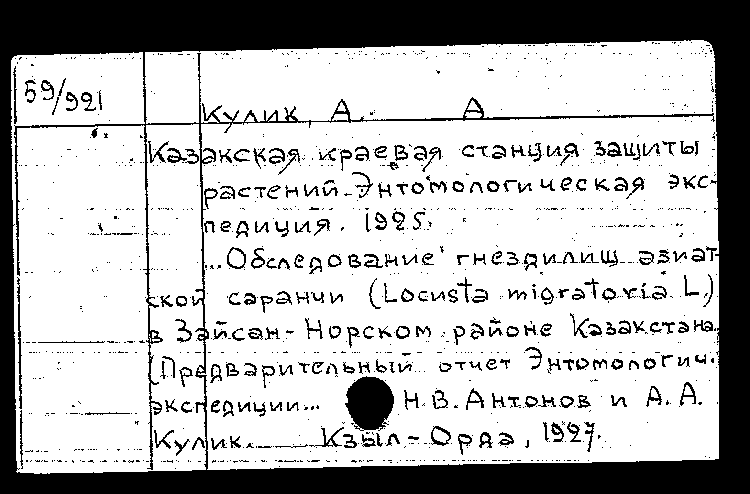 59/921
Кулик, А. А
Казакская краевая станция защиты
растений. Энтомологическая экс-
педиция. 1925.
...Обследование гнездилищ азиат-
ской саранчи (Locusta migratoria L.)
в Зайсан-Норском районе Казакстана.
(Предварительный отчет Энтомологич.
экспедиции... Н.В. Антонов и А. А.
Кулик. Кзыл-Орда, 1927.